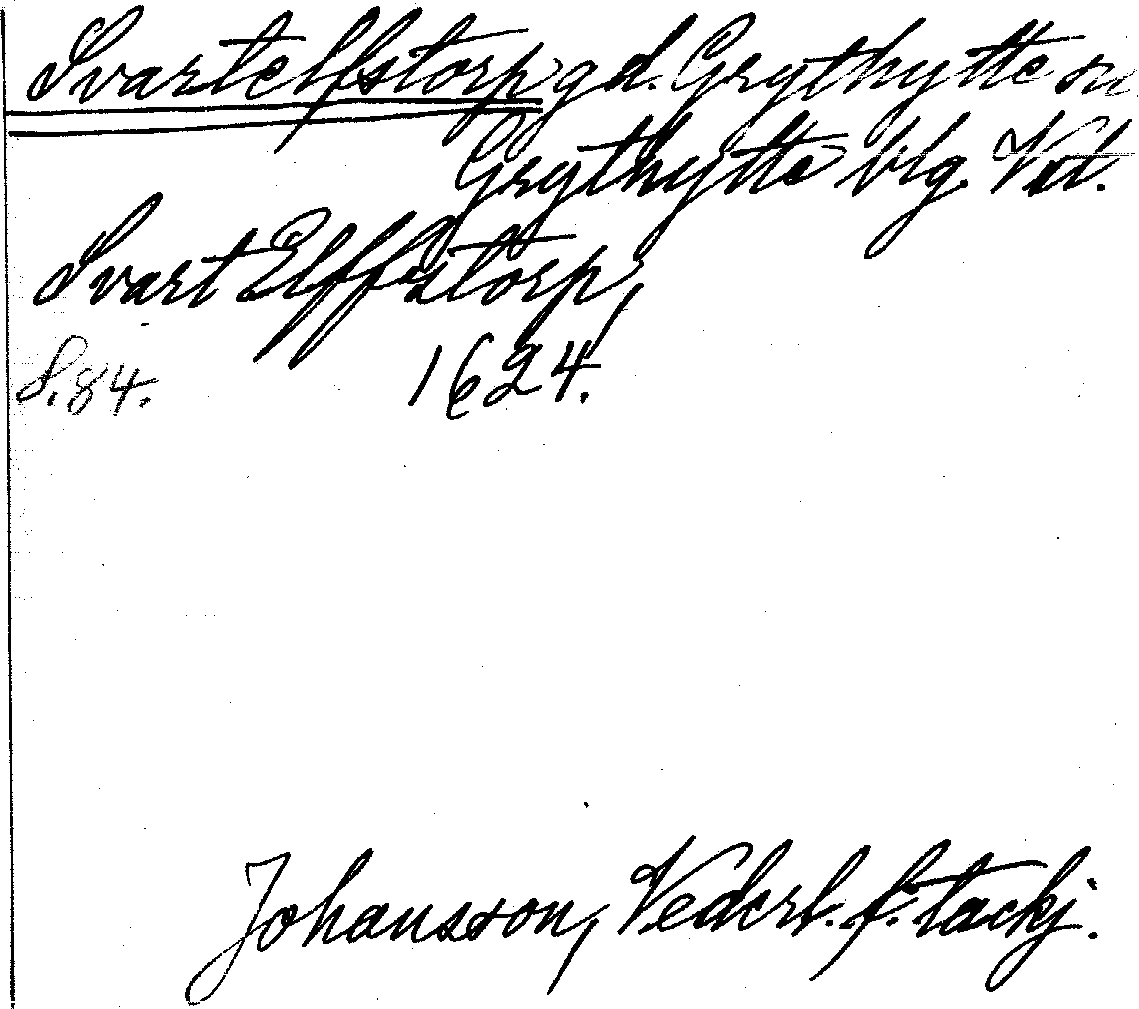 Svartelfstorp gd. Grythytte sn
Grythytte blg. Vstl.
Svart Elffstorp,
S. 84. 1624.
Johansson, Vederl. f. tackj.